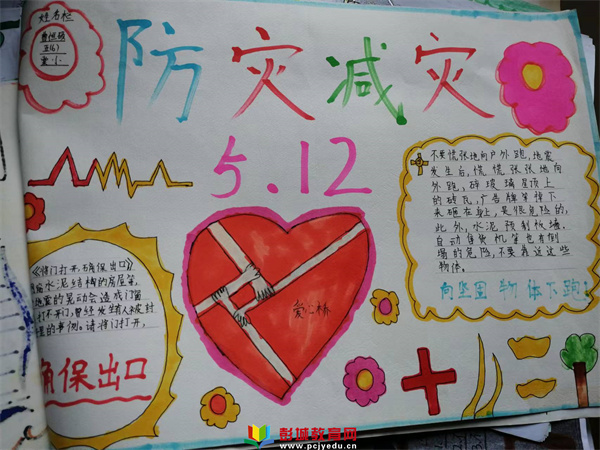 姓名栏
五(6)
防灾减灾
5.12
不要慌张地向户外跑,地震
发生后,慌慌张张地向
外跑,碎玻璃屋顶上
的砖瓦,广告牌等掉下
来砸在身上,是很危险的,
此外,水泥预制板墙,
自动售货机等也有倒
塌的危险,不要靠近这些
物体。
向坚固物体下跑!
《将门打开,确保出口》
水泥结构的房屋等,
地震的晃动会造成门窗
打不开门,曾经发生有人被封
的事例。请将门打开,
确保出口
爱心桥
彭城教育网
www.pcjyedu.cn